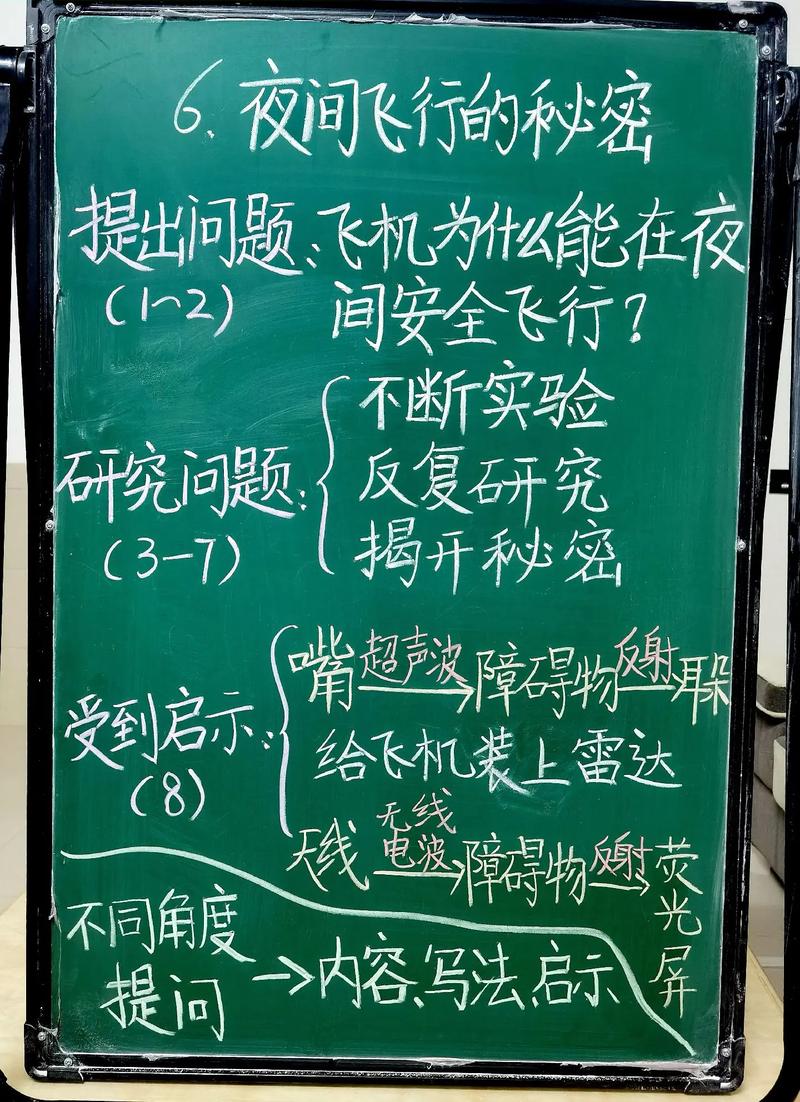 6. 夜间飞行的秘密
提出问题:飞机为什么能在夜
(1~2) 间安全飞行?
不断实验
研究问题: 反复研究
(3—7) 揭开秘密
嘴 超声波→ 障碍物 反射→ 耳朵
受到启示: 给飞机装上雷达
(8)
天线 无线电波→ 障碍物 反射→ 荧光屏
不同角度
提问 → 内容、写法、启示